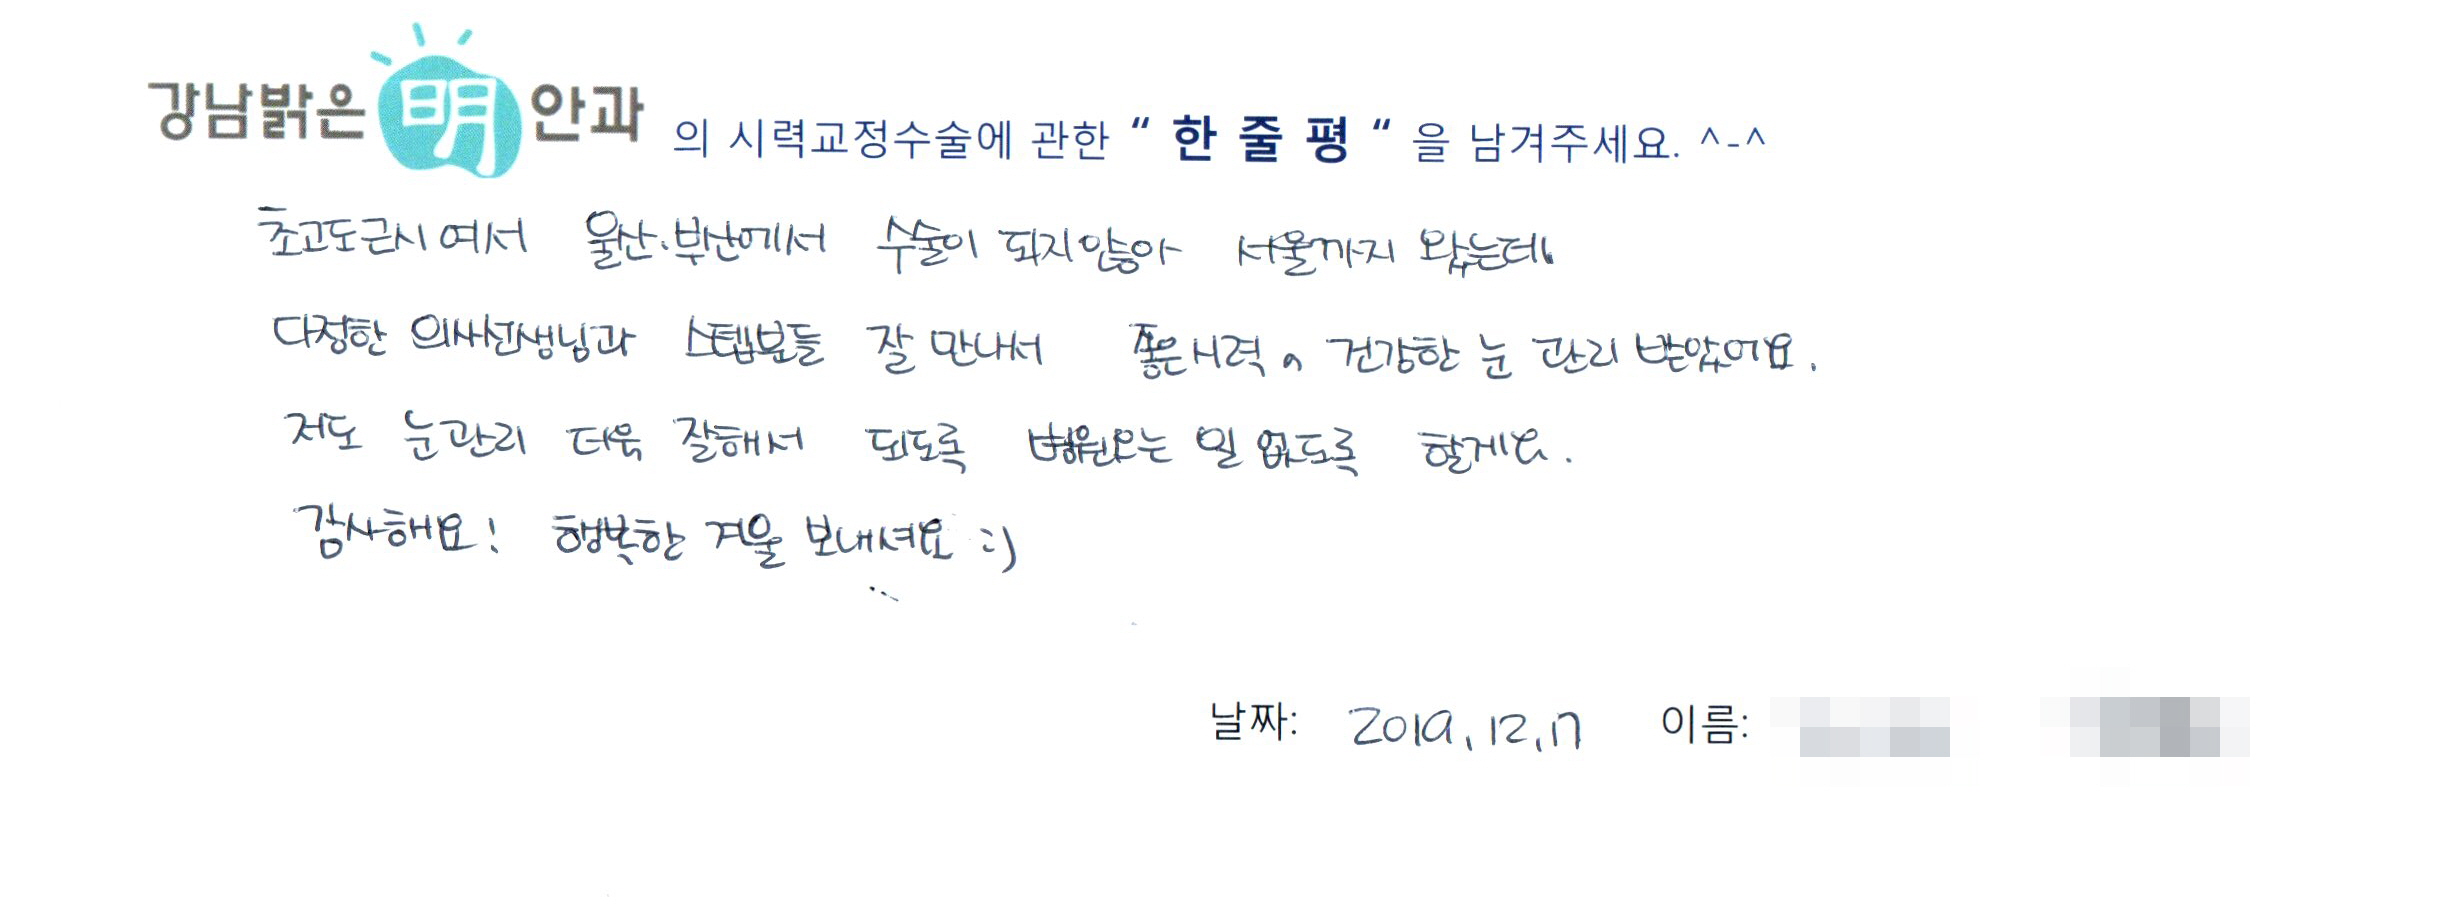 강남밝은明안과 의 시력교정수술에 관한 “ 한 줄 평 “ 을 남겨주세요. ^-^
초고도근시여서 울산.부산에서 수술이 되지않아 서울까지 왔는데
다정한 의사선생님과 스텝분들 잘 만나서 좋은시력, 건강한 눈 관리 받았어요.
저도 눈관리 더욱 잘해서 되도록 병원오는 일 없도록 할게요.
감사해요! 행복한 겨울 보내셔요 :)
날짜: 2019.12.17 이름: